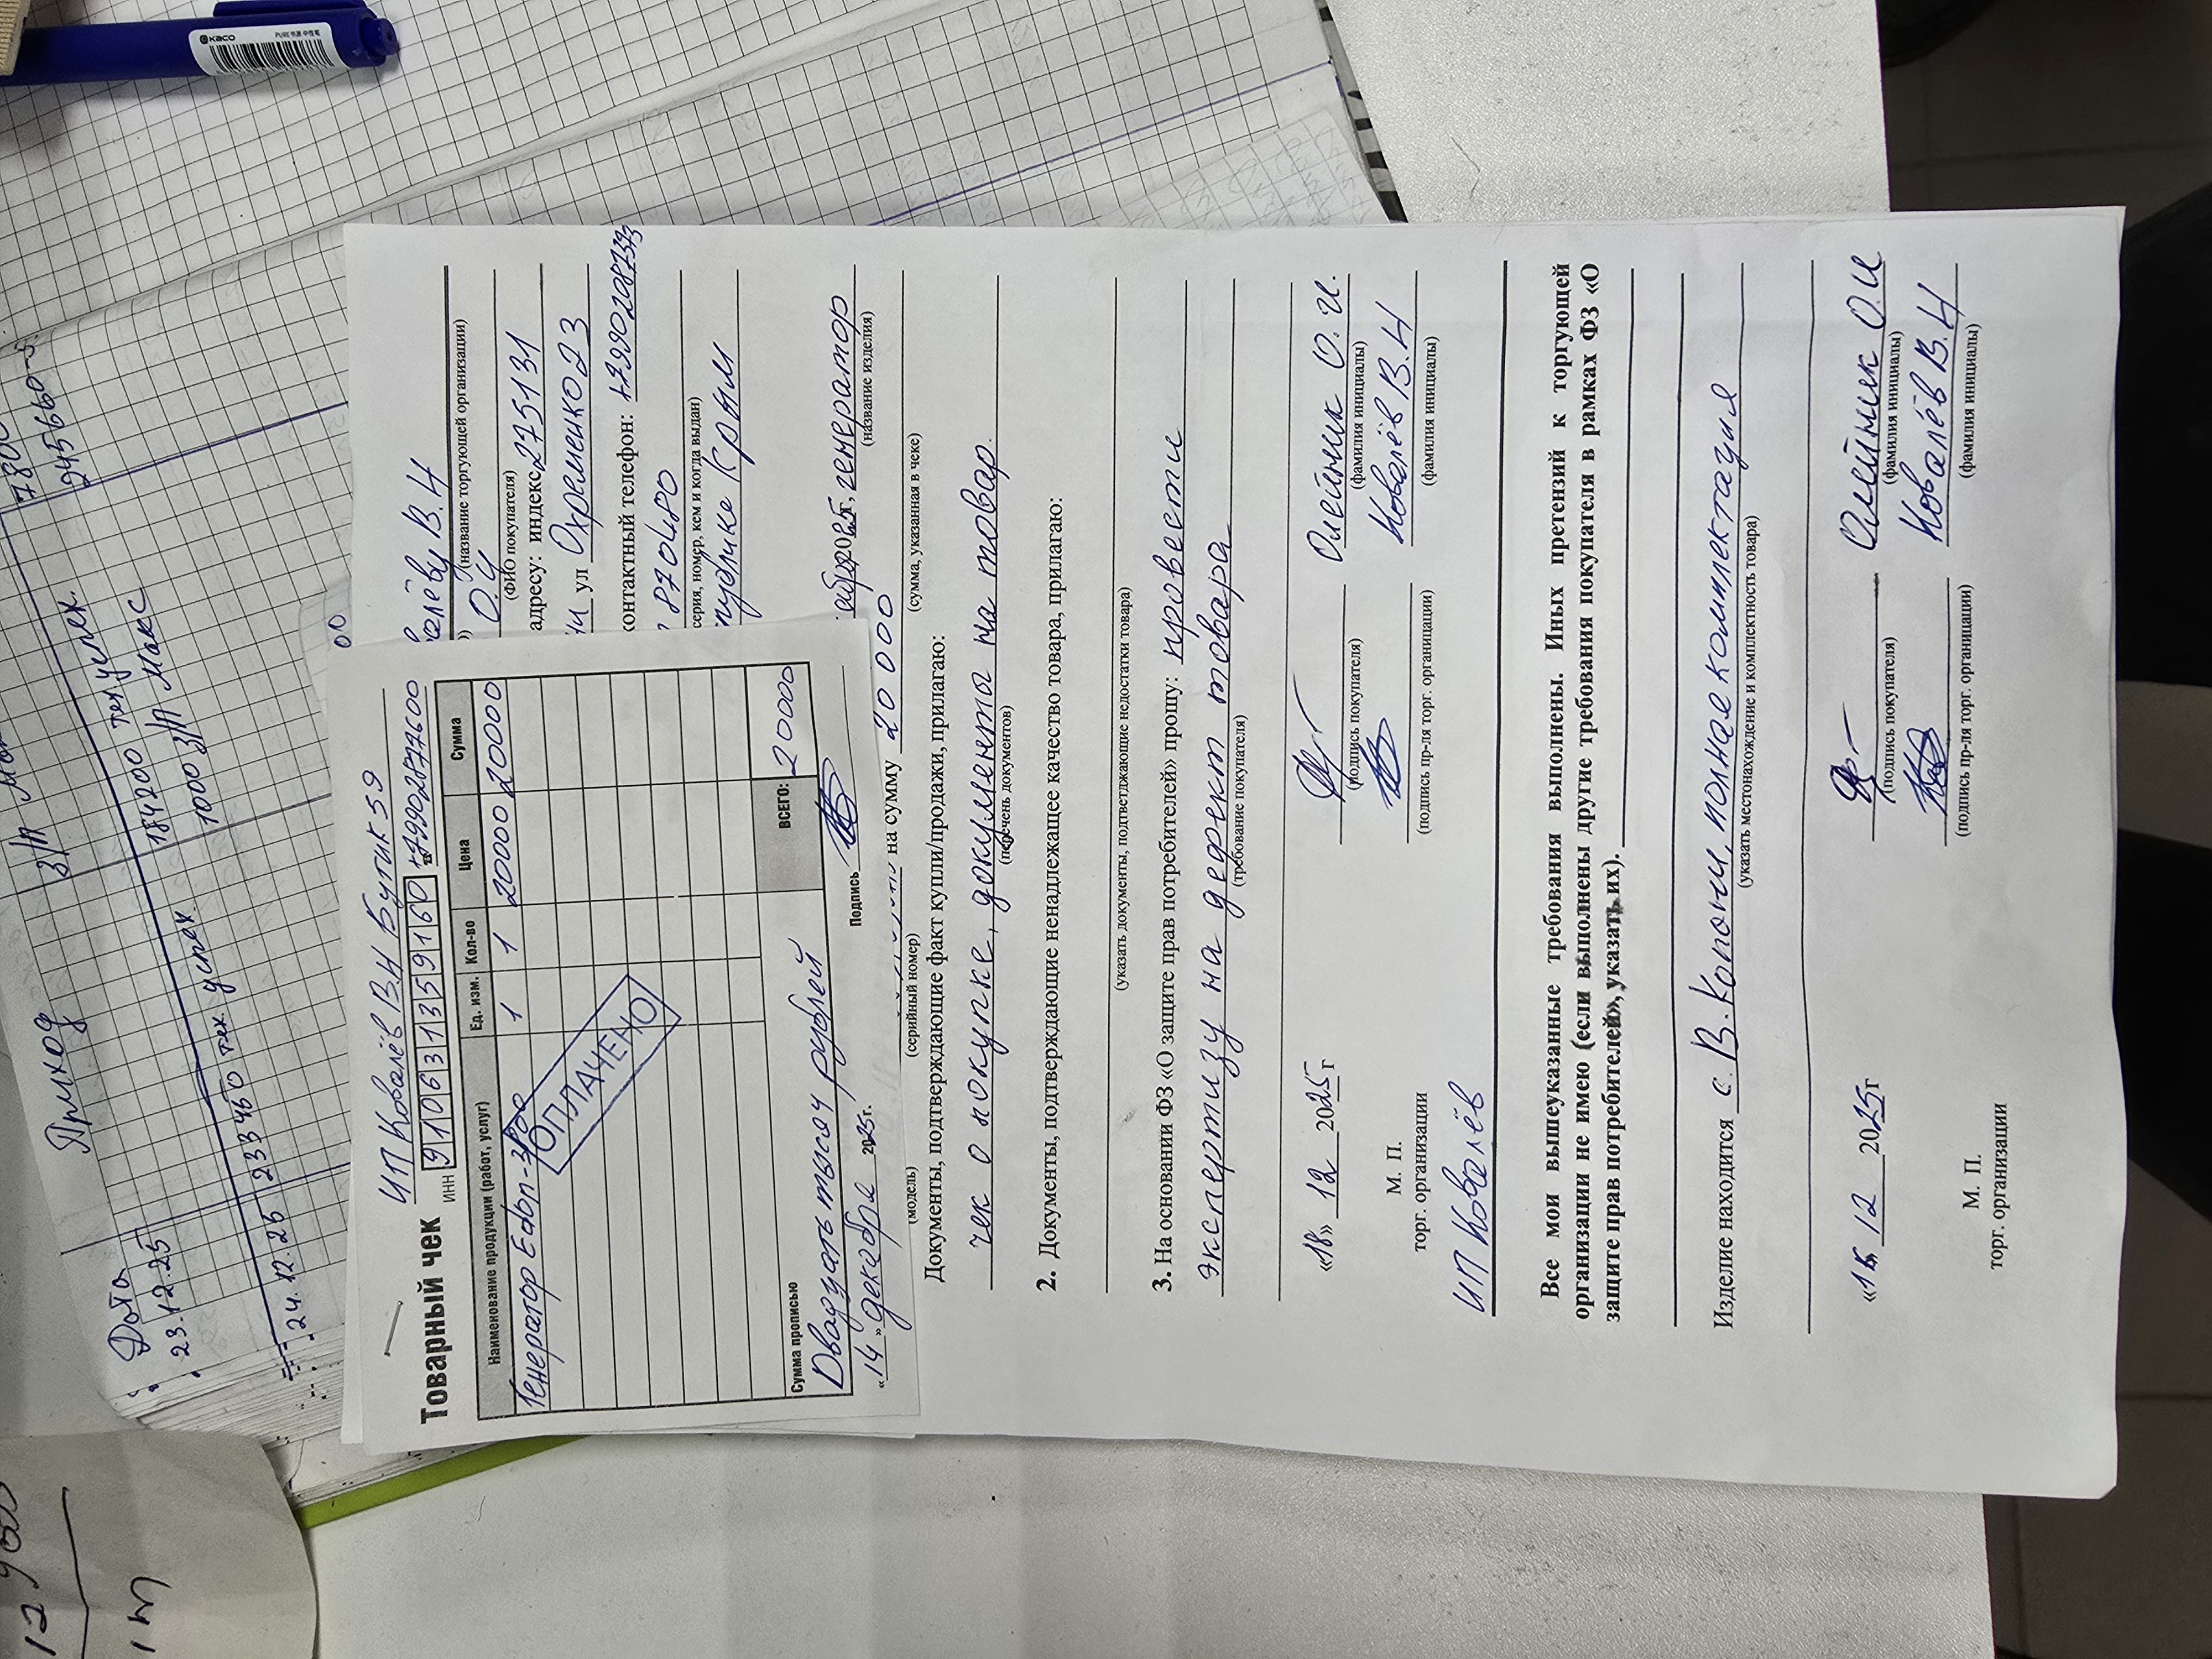 Приход
Дата
23.12.25
184200 тец успех
1000 з/п Макс
24.12.25 23346
успех
245660
12 900
1 м
kaco
Товарный чек
ИП Ковалёв В.Н Бутик 59
ИНН 910631359160
+79902877600
Наименование продукции (работ, услуг) Ед. изм. Кол-во Цена Сумма
Генератор Edon 1 1 20000 20000
ОПЛАЧЕНО
ВСЕГО: 20000
Сумма прописью
Двадцать тысяч рублей
«14» декабря 2025г. Подпись
В.Н
(название торгующей организации)
(ФИО покупателя)
адресу: индекс 2275131
ул Охременко 23
контактный телефон:
870480
серия, номер, кем и когда выдан)
Крым
генератор
(название изделия)
на сумму 20 000
(модель) (серийный номер) (сумма, указанная в чеке)
Документы, подтверждающие факт купли/продажи, прилагаю:
чек о покупке, документы на товар.
(перечень документов)
2. Документы, подтверждающие ненадлежащее качество товара, прилагаю:
(указать документы, подтверждающие недостатки товара)
3. На основании ФЗ «О защите прав потребителей» прошу: провести
экспертизу на дефект товара
(требование покупателя)
«18» 12 2025г Олейник О.И.
(подпись покупателя) (фамилия инициалы)
М. П. Ковалёв В.Н
торг. организации (подпись пр-ля торг. организации) (фамилия инициалы)
ИП Ковалёв
Все мои вышеуказанные требования выполнены. Иных претензий к торгующей
организации не имею (если выполнены другие требования покупателя в рамках ФЗ «О
защите прав потребителей», указать их).
Изделие находится с. В.Копани, полная комплектация
(указать местонахождение и комплектность товара)
12 2025г Олейник О.И
(подпись покупателя) (фамилия инициалы)
Ковалёв В.Н
М. П. (подпись пр-ля торг. организации) (фамилия инициалы)
торг. организации